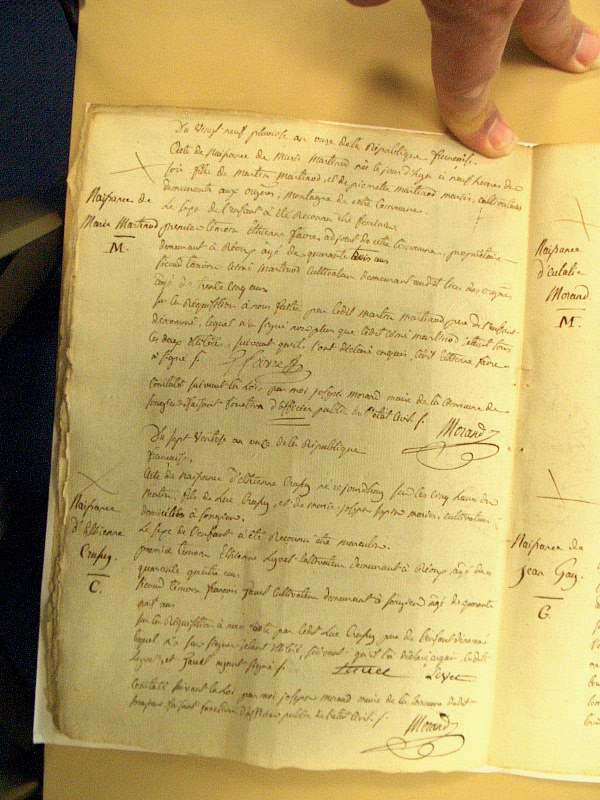 Du Vingt neuf pluviose an onze de la République française.
Acte de Naissance de Marie Martinod née le jourd'hyer à neuf heures du
soir fille de Martin Martinod, et de pierrette martinod mariés, cultivateurs
demeurants aux oyons, Montagne de cette Commune.
Le Sexe de l'enfant a été Reconnu être féminin.
premier témoin Etienne favre adjoint de cette Commune, propriétaire
demeurant à agé de quarante trois ans
second témoin martinod Cultivateur demeurant audit lieu des oyons
agé de trente cinq ans
sur la Réquisition à nous faite par ledit martin martinod pere de l'enfant
denommé, lequel n'a signé non plus que ledit martinod, étant tous
les deux illitérés, suivant qu'il l'ont déclaré enquis, ledit Etienne favre
a signé ſ.
Constaté suivant la Loi, par moi joseph morand maire de la Commune de
songieu faisant fonction d'officier public de l'état Civil ſ.
Morand
Naissance de
Marie Martinod
M.
Du sept Ventose an onze de la République
française.
Acte de Naissance d'Etienne Crussy né ce jourd'huy sur les cinq heures du
matin, fils de Luc Crussy, et de marie josephe mariés, cultivateurs
domiciliés à songieu.
Le Sexe de l'enfant a été Reconnu être masculin.
premier témoin Etienne Lyvet Cultivateur demeurant à agé de
quarante quatre ans
second témoin françois Cultivateur demeurant à songieu agé de quarante
ans
sur la Réquisition à nous faite par ledit Luc Crussy pere de l'enfant denommé
lequel n'a sçu signer étant illitéré, suivant qu'il l'a déclaré enquis, lesdits
Lyvet, et ayant signé ſ.
Lyvet
Constaté suivant la Loi par moi joseph morand maire de la Commune dudit
songieu faisant fonction d'officier public de l'état Civil ſ.
Morand
Naissance
d'Etienne
Crussy.
C.
Naissance
d'Eulalie
Morand
M.
Naissance de
Jean Gay.
G.